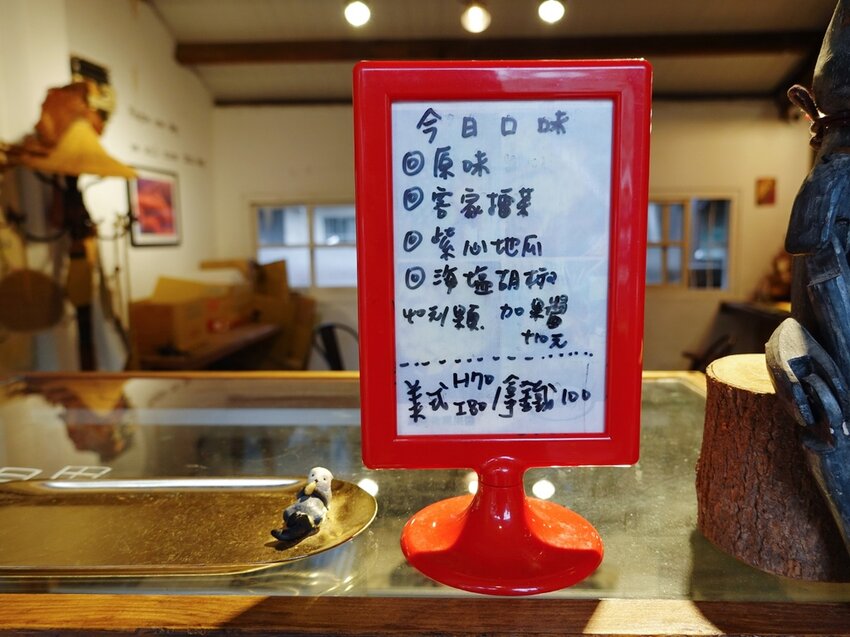 今日口味
◎原味
◎客家擂茶
◎紫心地瓜
◎海塩胡椒
加果醬
+10元
美式 H70 I80/拿鐵100